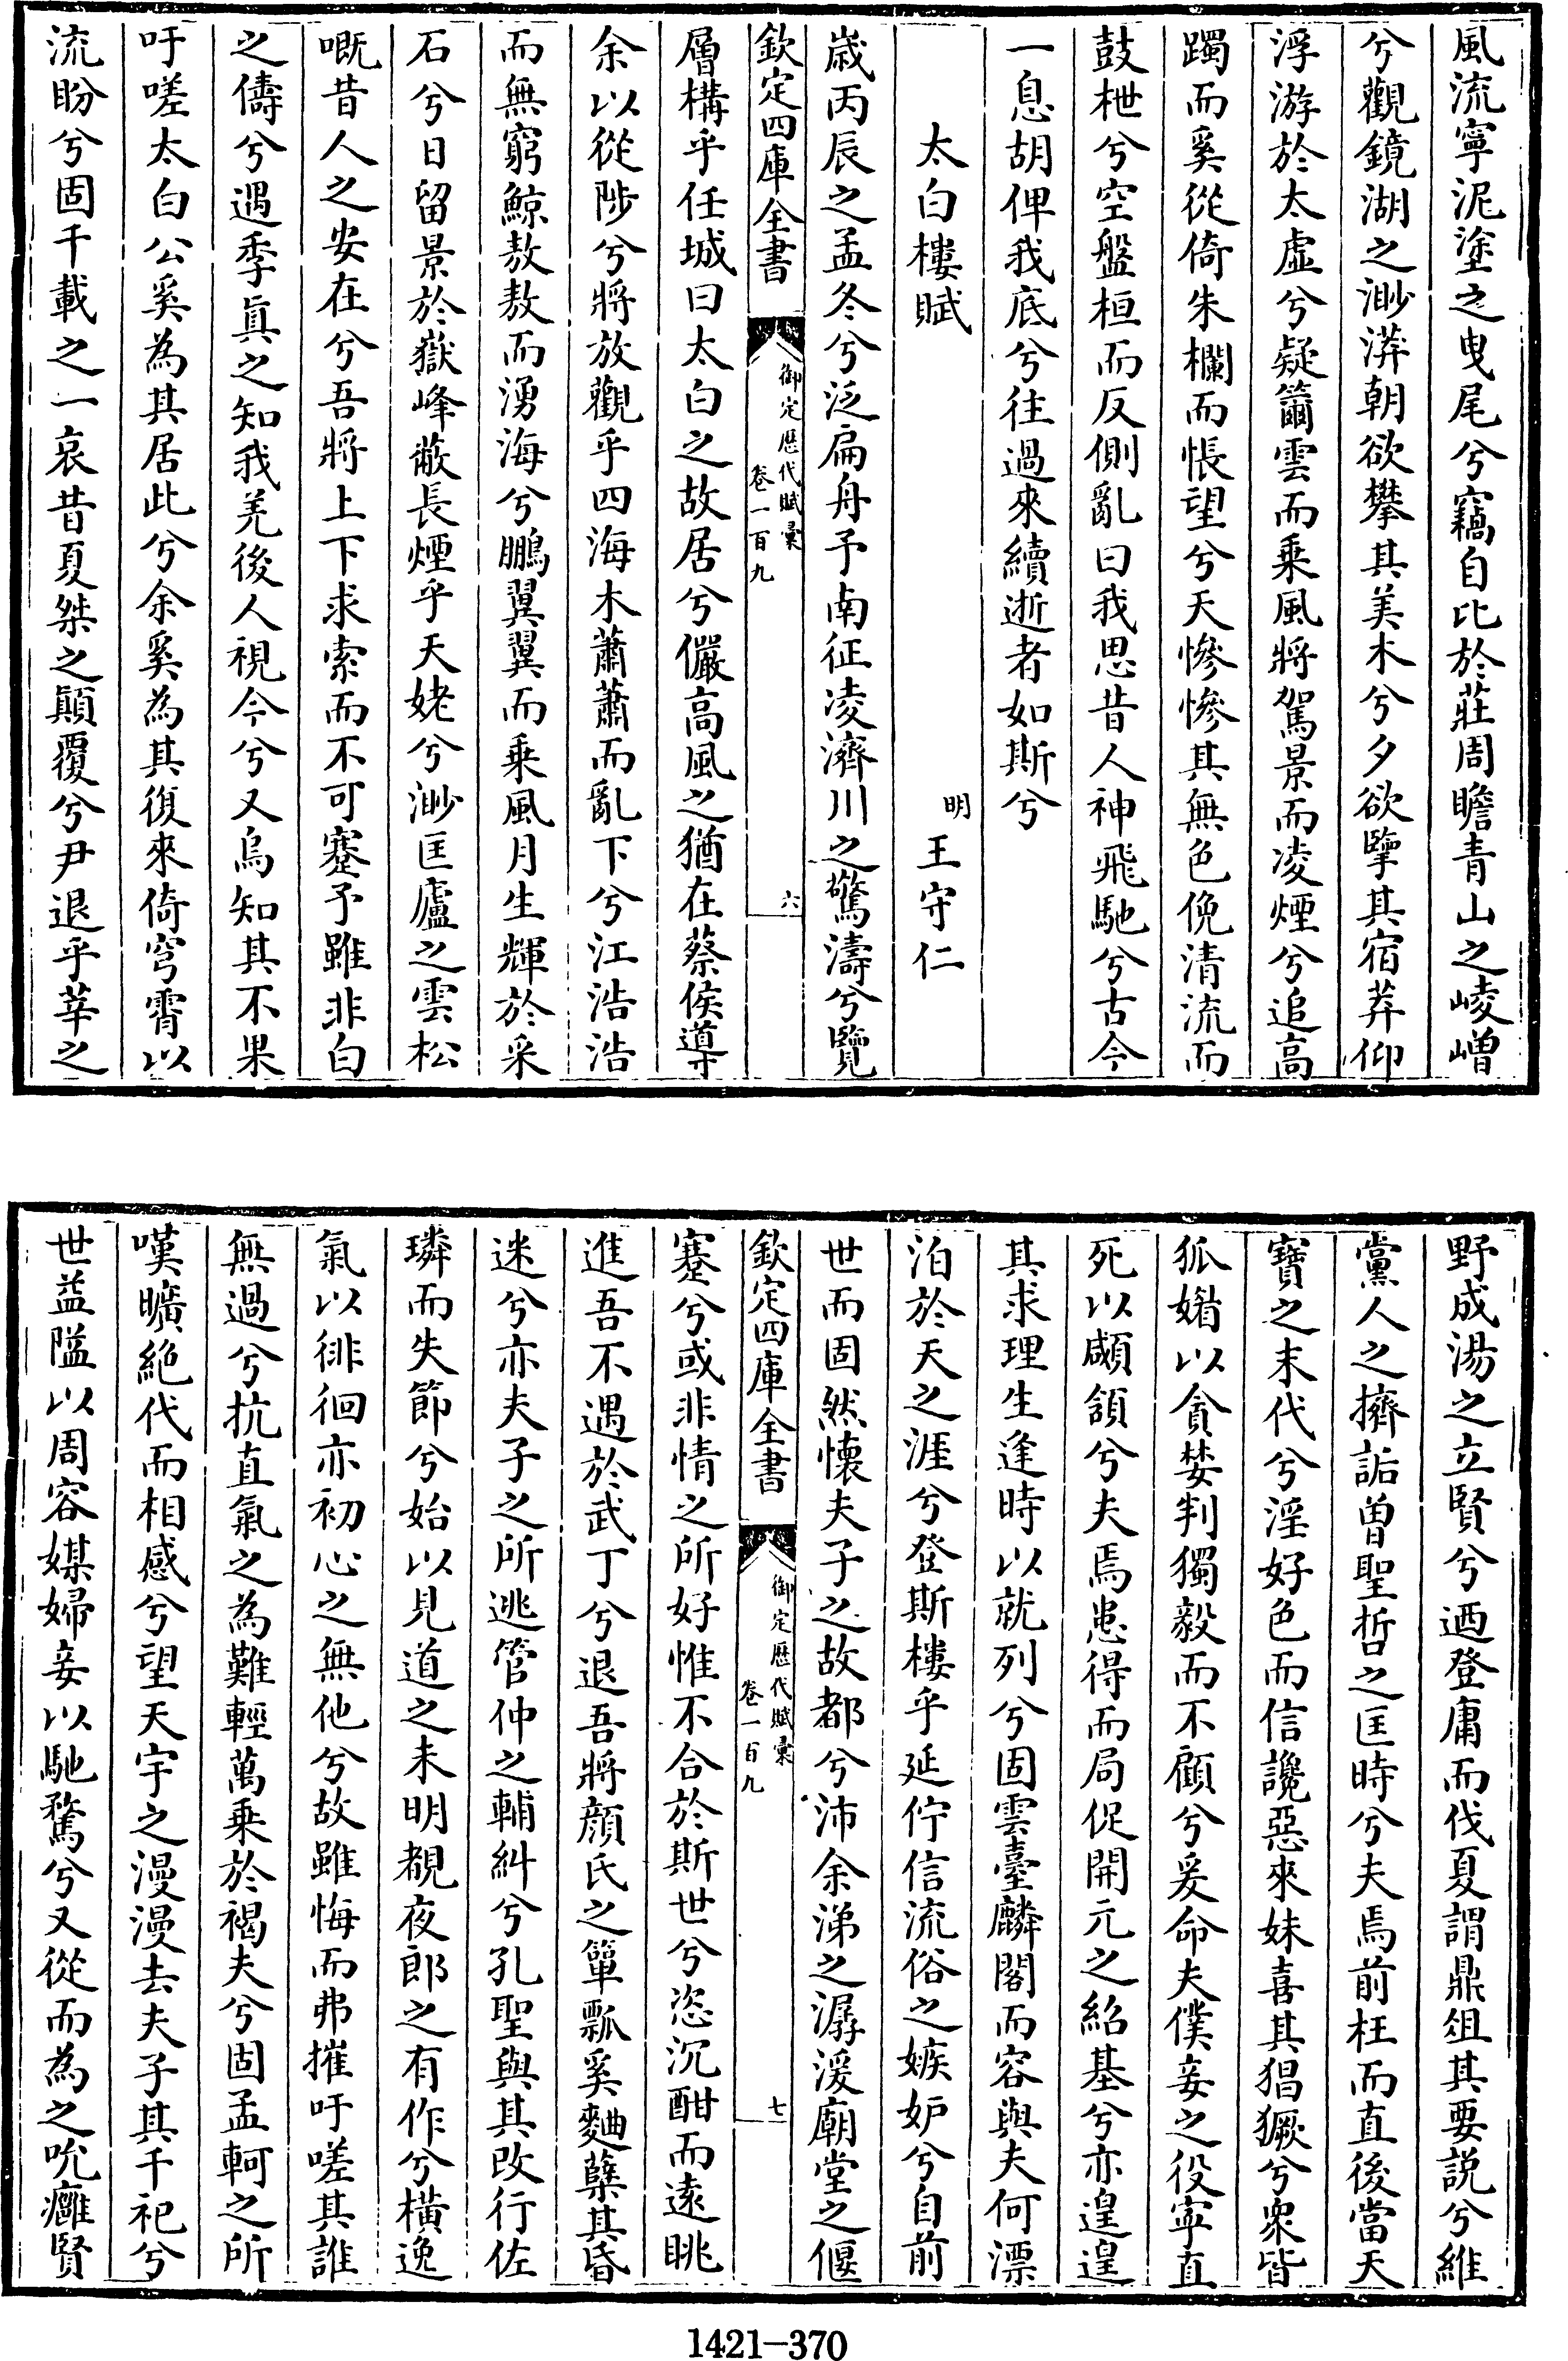 風流寧泥塗之曳尾兮竊自比於莊周瞻青山之崚嶒
兮觀鏡湖之渺漭朝欲攀其美木兮夕欲擥其宿莽仰
浮游於太虛兮疑籋雲而乗風將駕景而凌煙兮追高
躅而奚從倚朱欄而悵望兮天慘慘其無色俛清流而
鼓枻兮空盤桓而反側亂曰我思昔人神飛馳兮古今
一息胡俾我底兮往過來續逝者如斯兮
太白樓賦 明 王守仁
歲丙辰之孟冬兮泛扁舟予南征凌濟川之驚濤兮覽
欽定四庫全書 御定歷代賦彙 卷一百九 六
層構乎任城曰太白之故居兮儼高風之猶在蔡侯導
余以從陟兮將放觀乎四海木蕭蕭而亂下兮江浩浩
而無窮鯨敖敖而湧海兮鵬翼翼而乗風月生輝於采
石兮日留景於嶽峰蔽長煙乎天姥兮渺匡廬之雲松
嘅昔人之安在兮吾將上下求索而不可蹇予雖非白
之儔兮遇季真之知我羌後人視今兮又烏知其不果
吁嗟太白公奚為其居此兮余奚為其復來倚穹霄以
流盼兮固千載之一哀昔夏桀之顛覆兮尹退乎莘之
野成湯之立賢兮迺登庸而伐夏謂鼎俎其要説兮維
黨人之擠詬曽聖哲之匡時兮夫焉前枉而直後當天
寶之末代兮淫好色而信讒惡來妹喜其猖獗兮衆皆
狐媚以貪婪判獨毅而不顧兮爰命夫僕妾之役寜直
死以顑頷兮夫焉患得而局促開元之紹基兮亦遑遑
其求理生逢時以就列兮固雲臺麟閣而容與夫何漂
泊於天之涯兮登斯樓乎延佇信流俗之嫉妒兮自前
世而固然懐夫子之故都兮沛余涕之潺湲廟堂之偃
欽定四庫全書 御定歷代賦彙 卷一百九 七
蹇兮或非情之所好惟不合於斯世兮恣沉酣而遠眺
進吾不遇於武丁兮退吾將顔氏之簞瓢奚麯蘖其昏
迷兮亦夫子之所逃管仲之輔糾兮孔聖與其改行佐
璘而失節兮始以見道之未明覩夜郎之有作兮橫逸
氣以徘徊亦初心之無他兮故雖悔而弗摧吁嗟其誰
無過兮抗直氣之為難輕萬乗於褐夫兮固孟軻之所
嘆曠絶代而相感兮望天宇之漫漫去夫子其千祀兮
世益隘以周容媒婦妾以馳騖兮又從而為之吮癰賢
1421-370